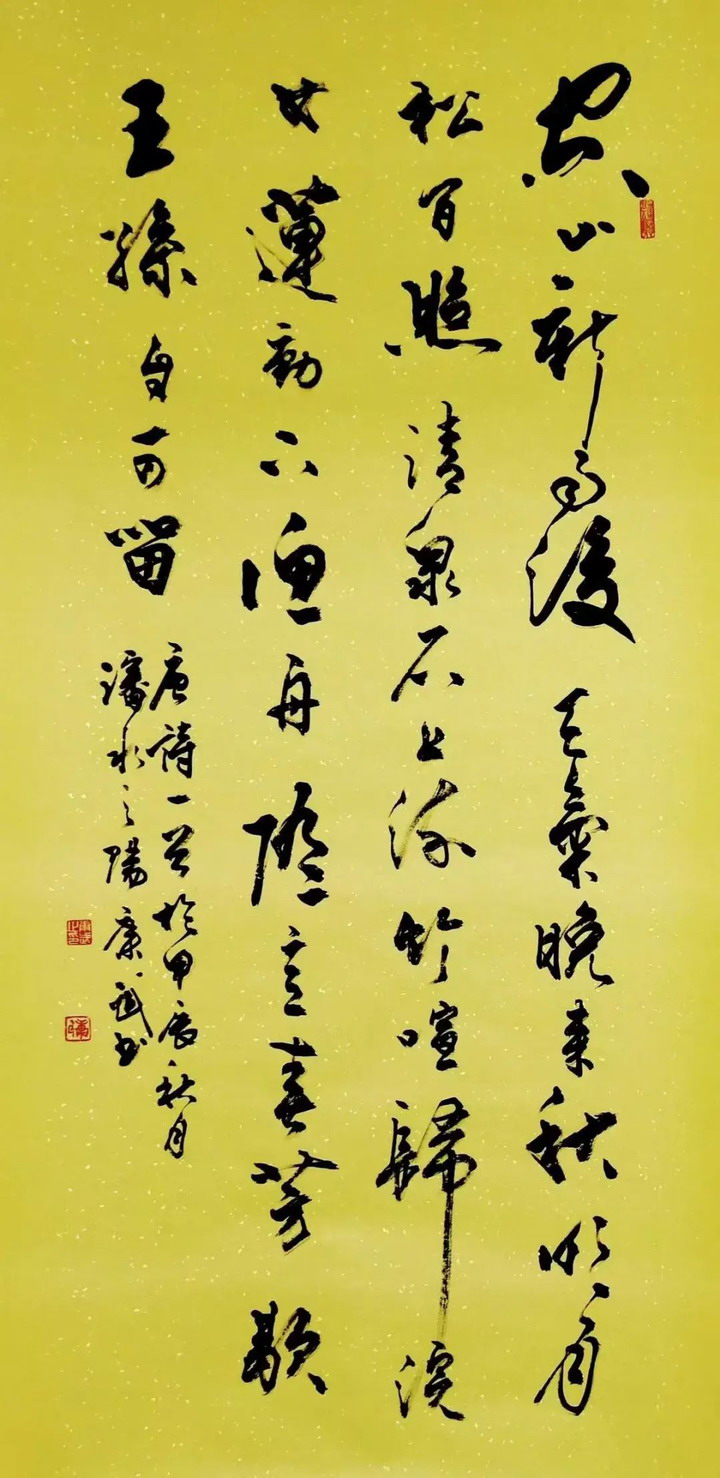 空山新雨後天氣晚來秋明月
松間照清泉石上流竹喧歸浣
女蓮動下漁舟隨意春芳歇
王孫自可留
唐詩一首於甲辰秋月
瀋水之陽康書